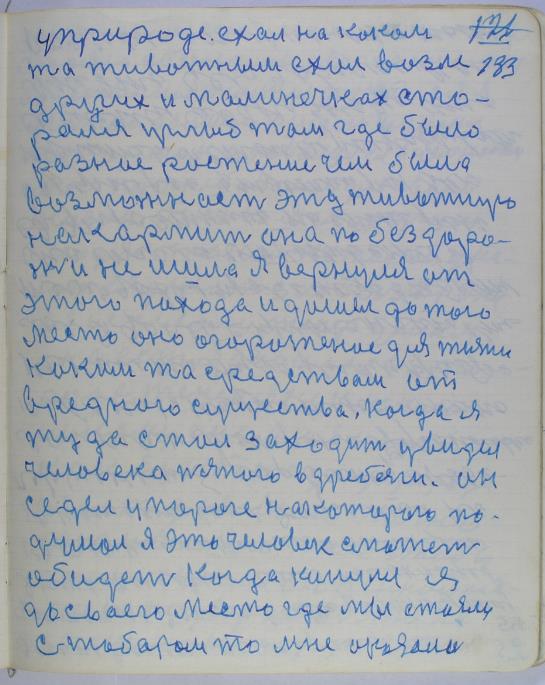 у природе. ехал на каком
та животным ехал возле 183
других и малиночках сто-
ралия уплыб там где было
разное ростение чем была
возможност эту животную
накармит она по бездоро-
жи не ишла Я вернуля от
этого похода и дишел до того
место оно огорожение для жизни
каким та средствам от
вредного сущиства. Когда я
туда стал заходит увидел
человека пяного вдребяги. он
седел у пороге на которого по-
думал я это человек сможет
обидет Когда кинули я
до сваего место где мы стояли
с табаром то мне